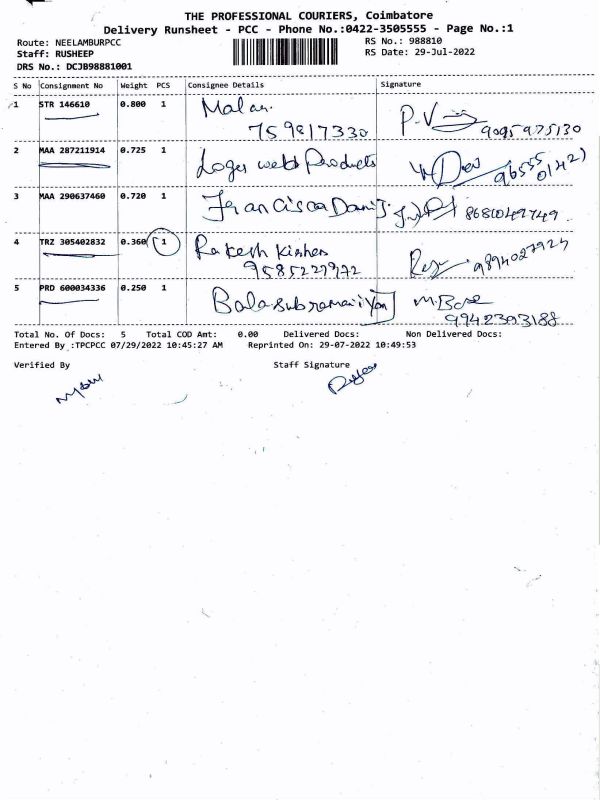 THE PROFESSIONAL COURIERS, Coimbatore
Delivery Runsheet - PCC - Phone No.:0422-3505555 - Page No.:1
Route: NEELAMBURPCC RS No.: 988810
Staff: RUSHEEP RS Date: 29-Jul-2022
DRS No.: DCJB98881001
S No Consignment No Weight PCS Consignee Details Signature
1 STR 146610 0.800 1 Malar P.V
759817330 9095975130
2 MAA 287211914 0.725 1 Loger webb Products
3 MAA 290637460 0.720 1 Francisca Dani 8681049749
4 TRZ 305402832 0.360 1 Rakesh Kishen 9894027924
9585227972
5 PRD 600034336 0.250 1 Balasubramaniyan M.Bose
9942303188
Total No. Of Docs: 5 Total COD Amt: 0.00 Delivered Docs: Non Delivered Docs:
Entered By :TPCPCC 07/29/2022 10:45:27 AM Reprinted On: 29-07-2022 10:49:53
Verified By Staff Signature